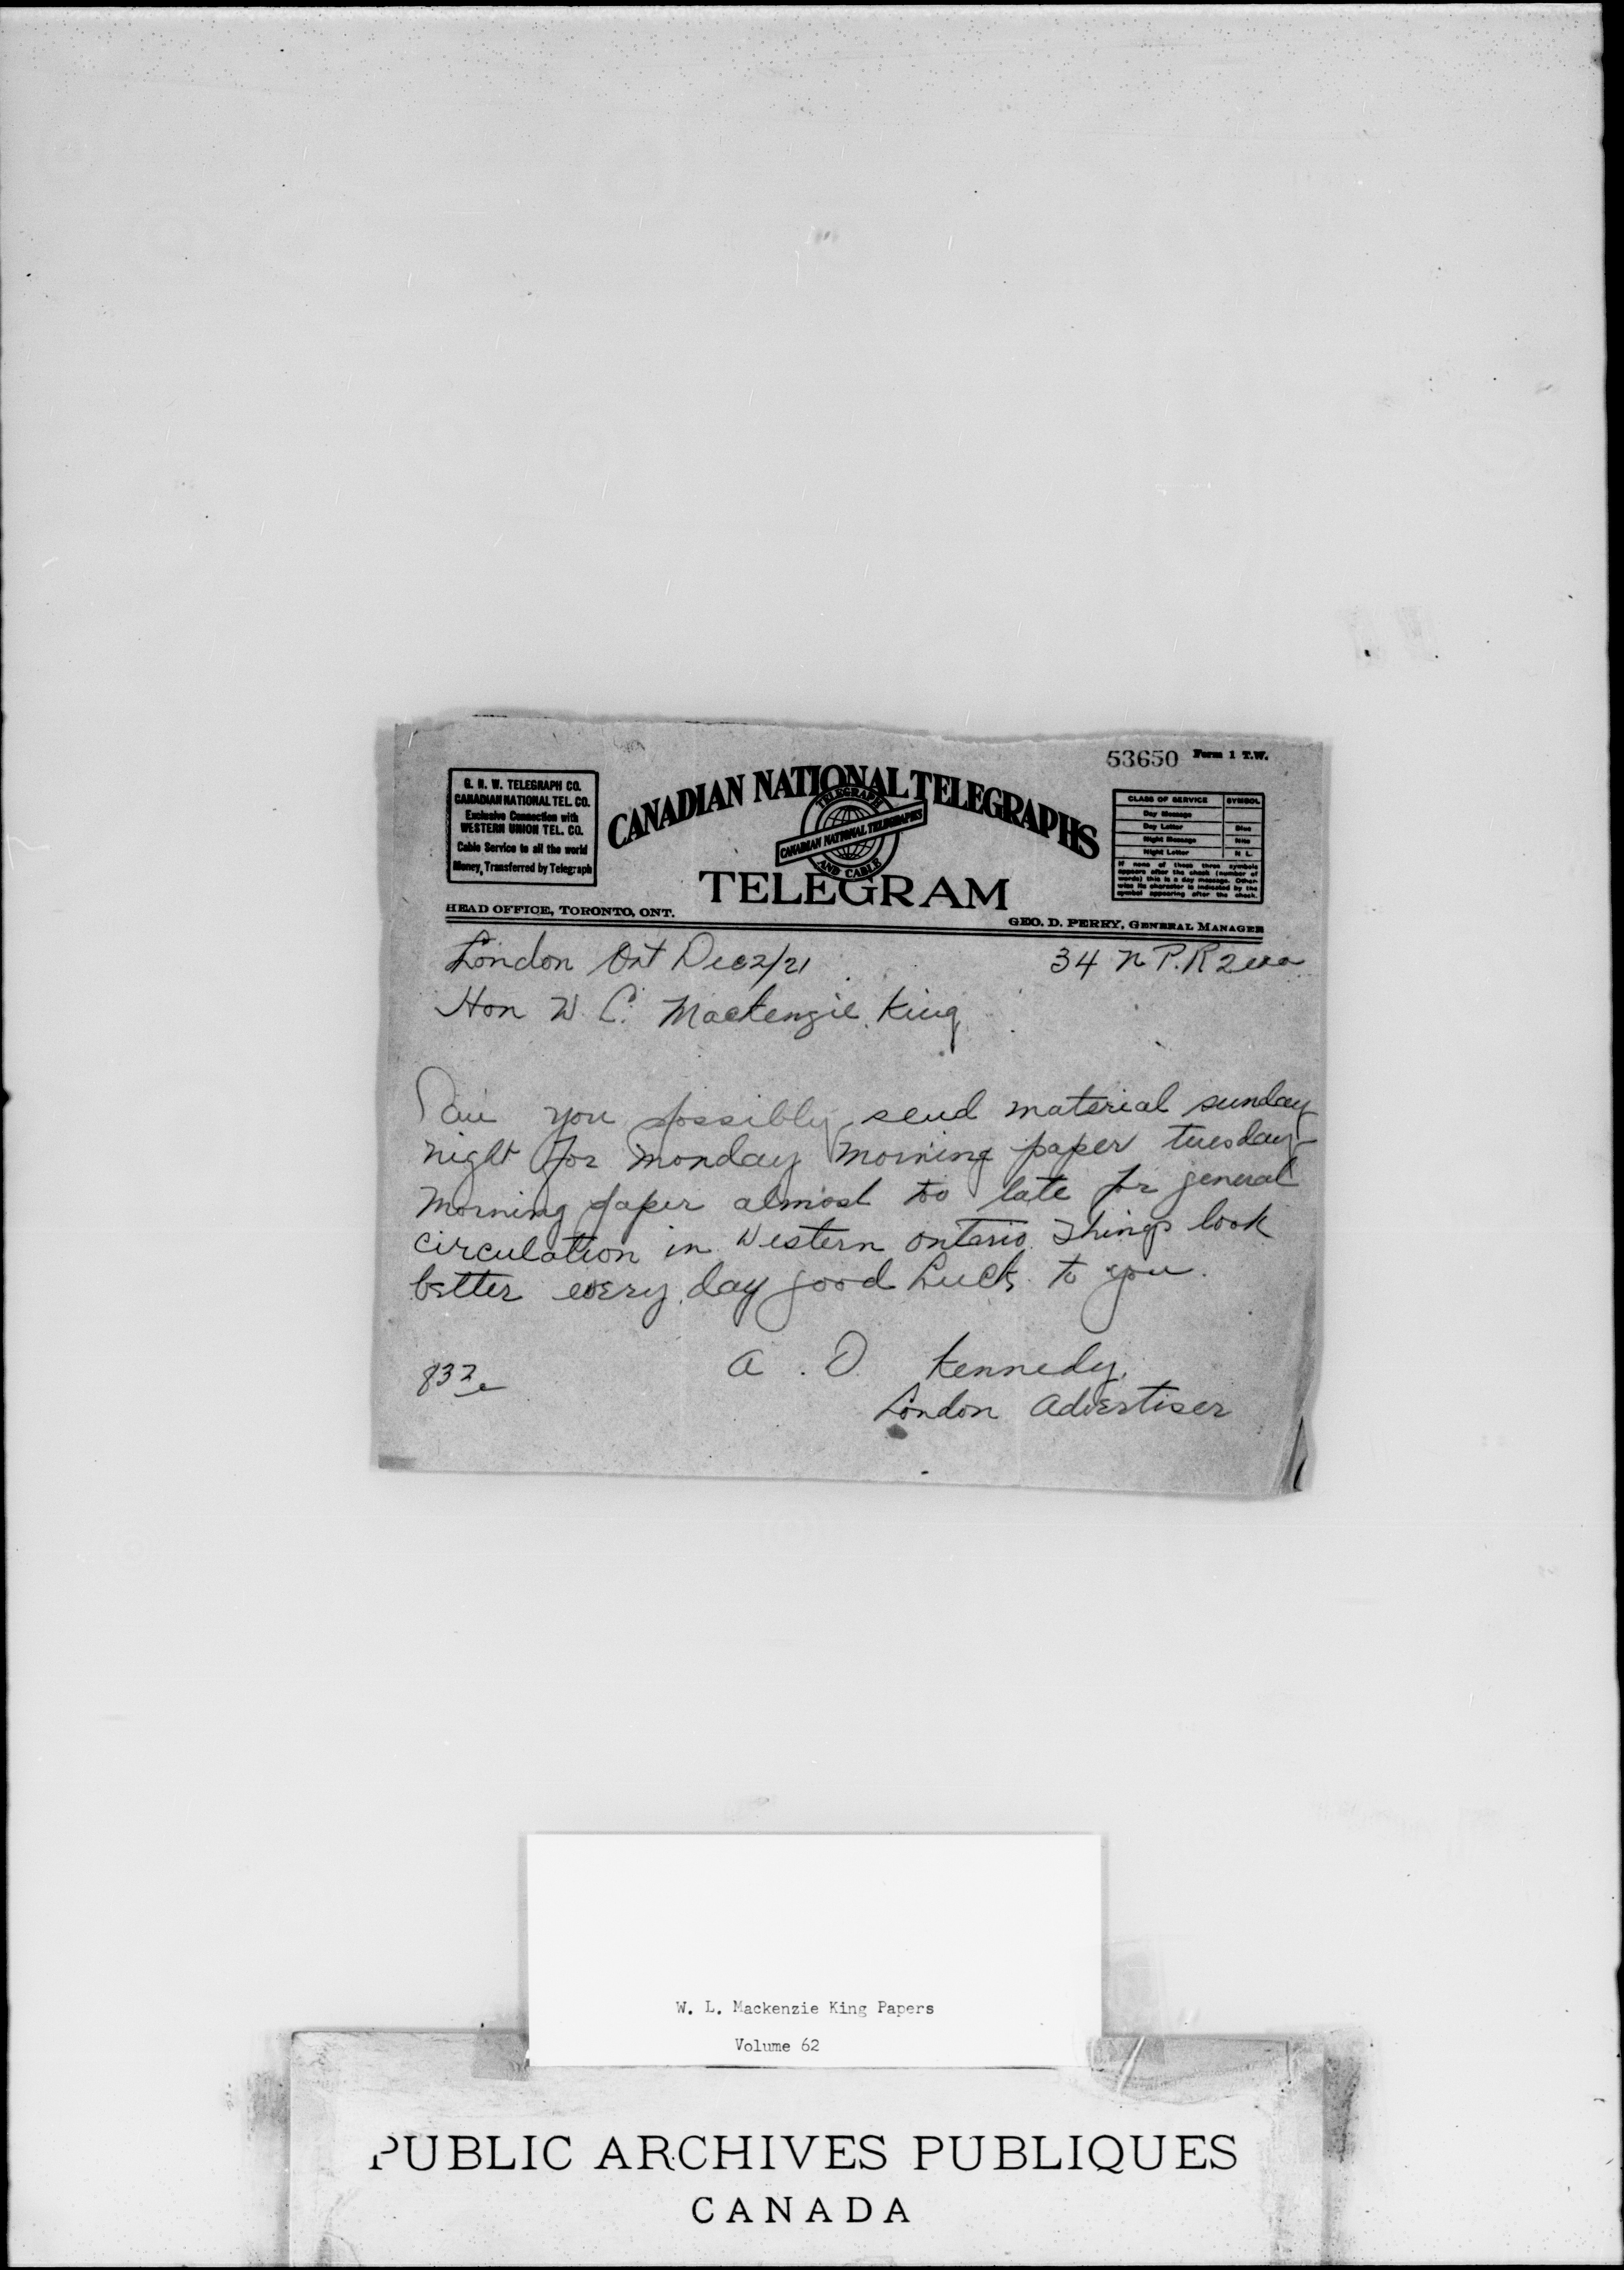 53650 Form 1 T.W.
G. N. W. TELEGRAPH CO.
CANADIAN NATIONAL TEL. CO.
Exclusive Connection with
WESTERN UNION TEL. CO.
Cable Service to all the world
Money Transferred by Telegraph
CANADIAN NATIONAL TELEGRAPHS
TELEGRAPH
CANADIAN NATIONAL TELEGRAPHS
AND CABLE
TELEGRAM
CLASS OF SERVICE SYMBOL
Day Message
Day Letter Blue
Night Message Nite
Night Letter N L
If none of these three symbols
appears after the check (number of
words) this is a day message. Other-
wise its character is indicated by the
symbol appearing after the check.
HEAD OFFICE, TORONTO, ONT.
GEO. D. PERRY, GENERAL MANAGER
London Ont Dec 2/21 34 N P.R
Hon W. L. Mackenzie King
Can you possibly send material sunday
night for monday morning paper tuesday
morning paper almost too late for general
circulation in Western ontario Things look
better every day good Luck to you.
A. D. Kennedy
832
London Advertiser
W. L. Mackenzie King Papers
Volume 62
PUBLIC ARCHIVES PUBLIQUES
CANADA